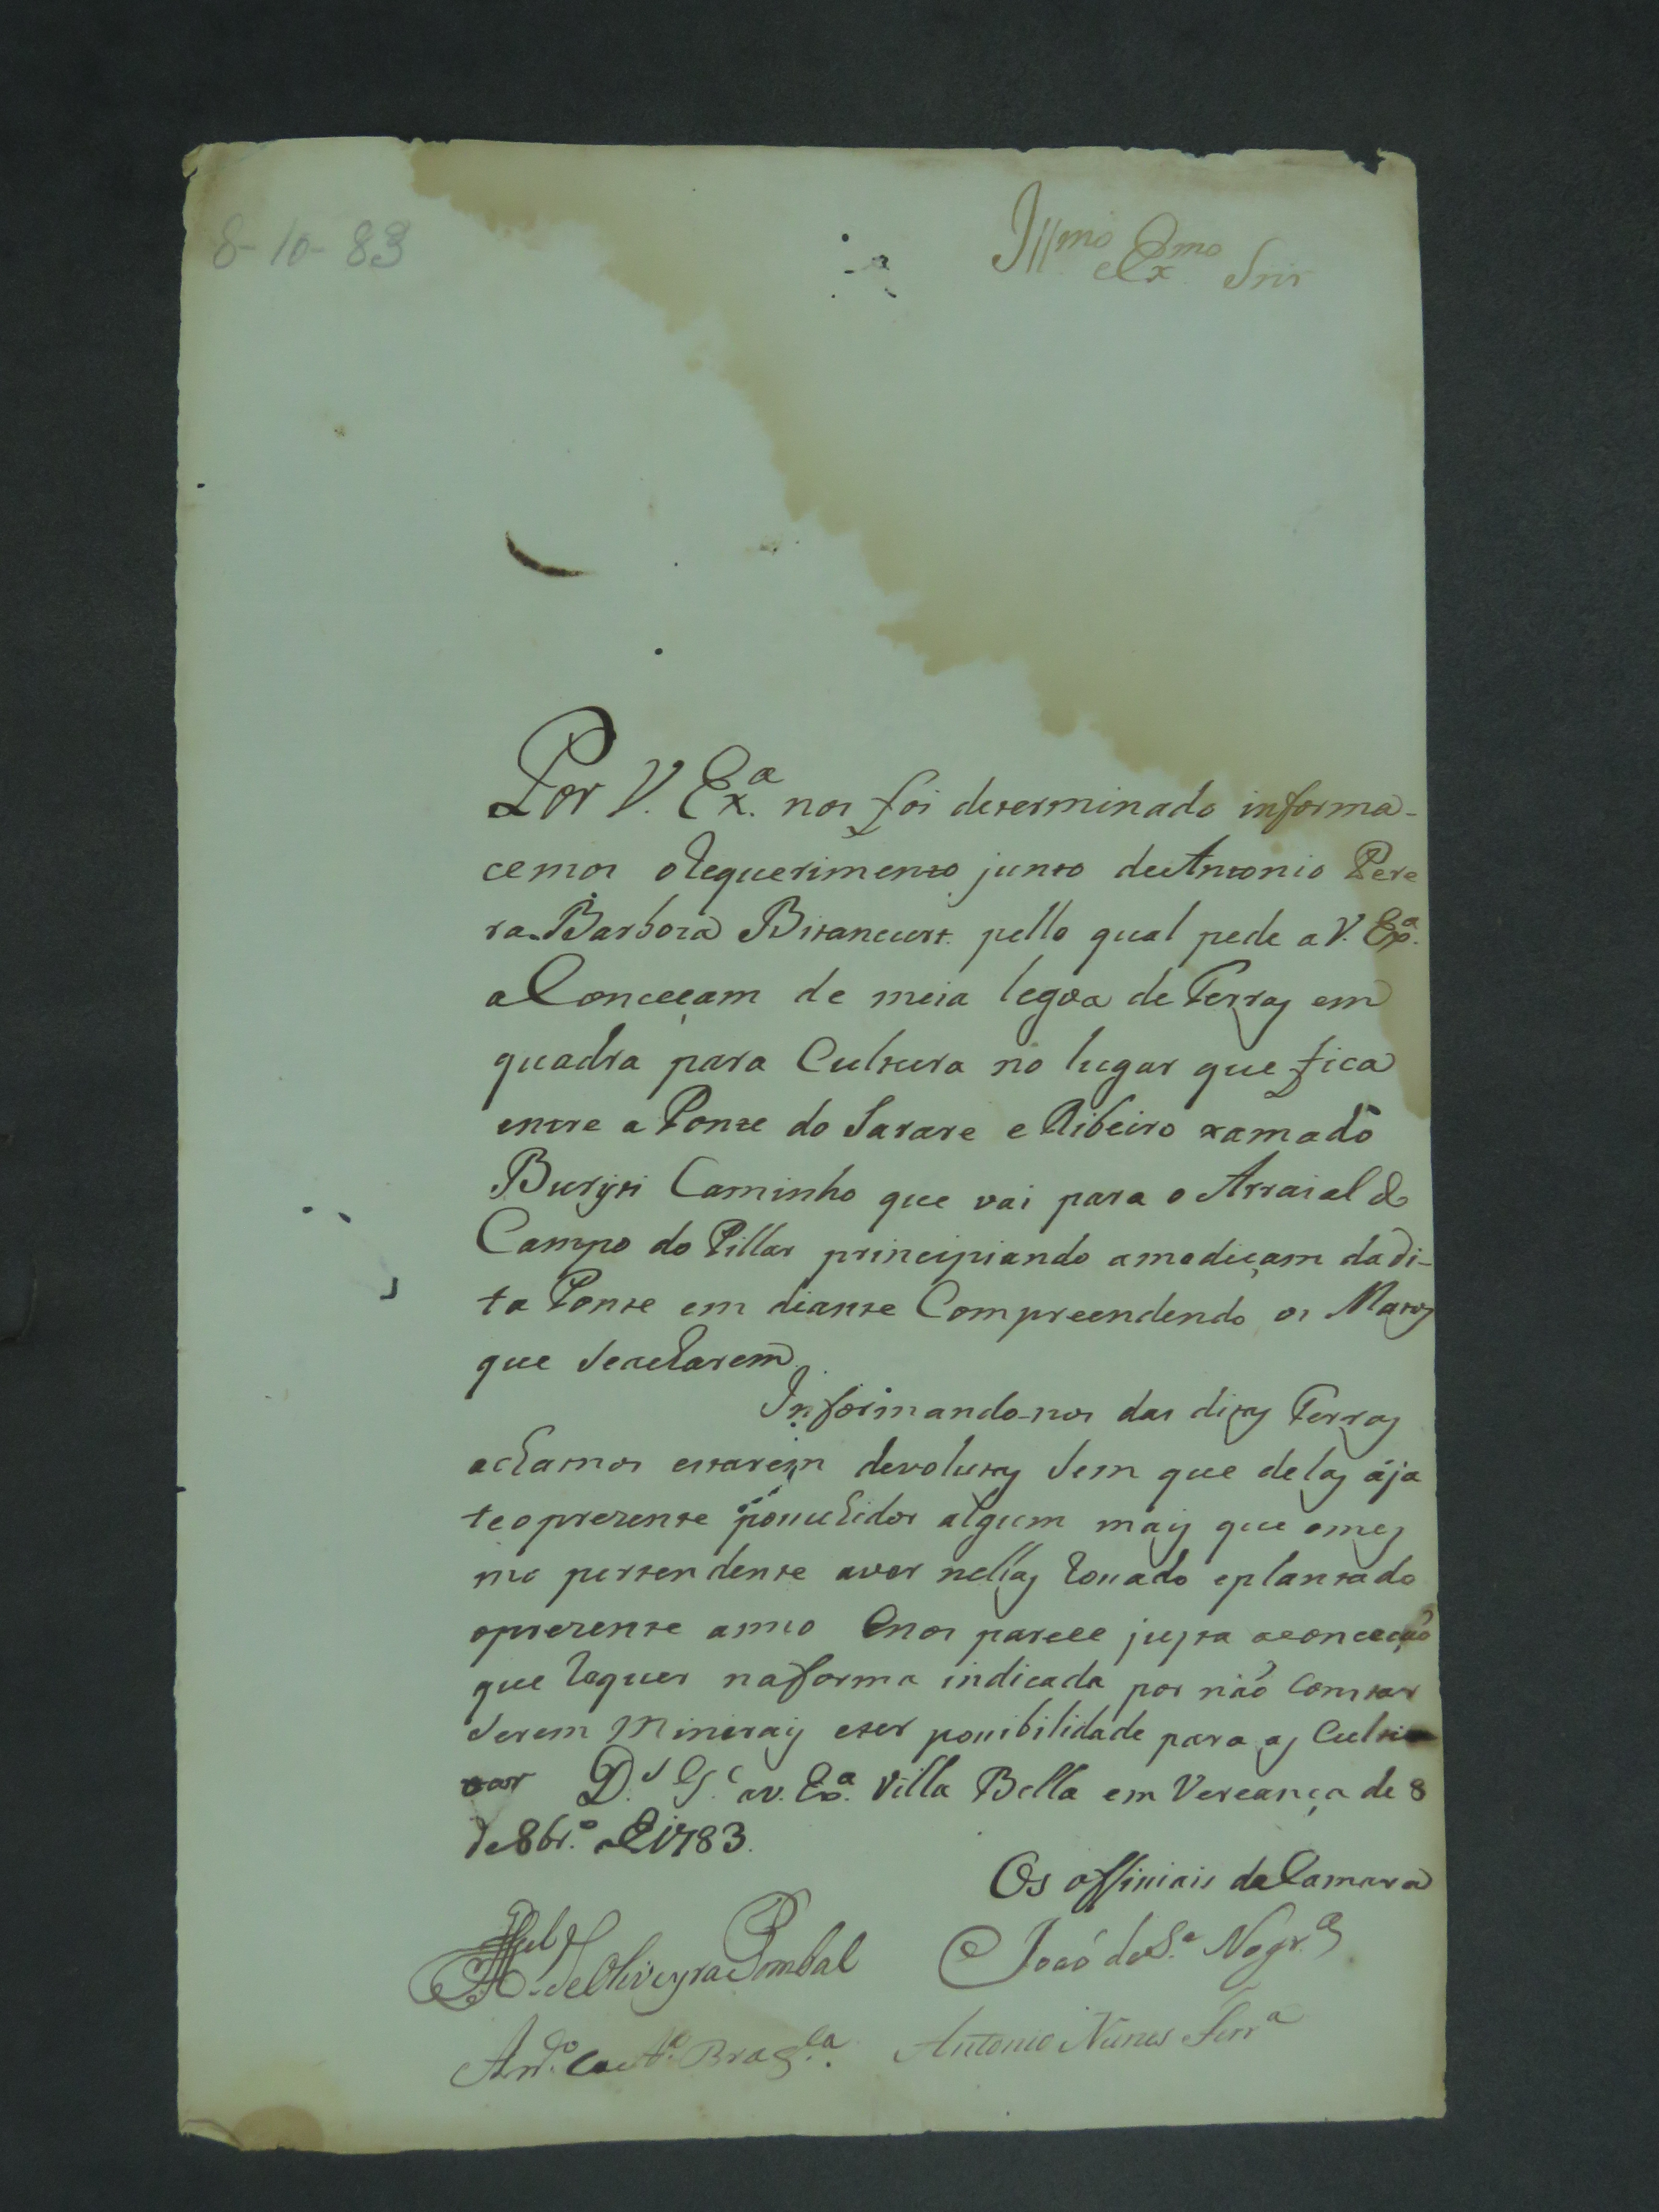 8-10-83
Illmo e Exmo Snr
Por V. Exa. nos foi determinado informa-
cemos o Requerimento junto de Antonio Pere
ra Barboza Bitancurt. pello qual pede a V. Exa.
a Conceçam de meia legoa de Terras em
quadra para Cultura no lugar que fica
entre a Ponte do Sarare e Ribeiro xamado
Buriti Caminho que vai para o Arraial do
Campo do Pillar principiando a mediçam da di-
ta Ponte em diante Compreendendo os Matos
que se acharem
Informando-nos das ditas Terras
achamos estarem devolutas sem que delas aja
te o prezente possuhidor algum mais que o mes
mo pertendente aver nellas Rossado e plantado
o prezente anno E nos parece justa a conceção
que Requer na forma indicada por não Constar
serem Minerais e ter possibilidade para as Culti
var D.s G.e a V. Exa. Villa Bella em Vereança de 8
de 8br.o de 1783.
Os officiais da Camara
de Oliveyra Pombal João de S.a Nogr.a
Antonio Nunes Ferr.a